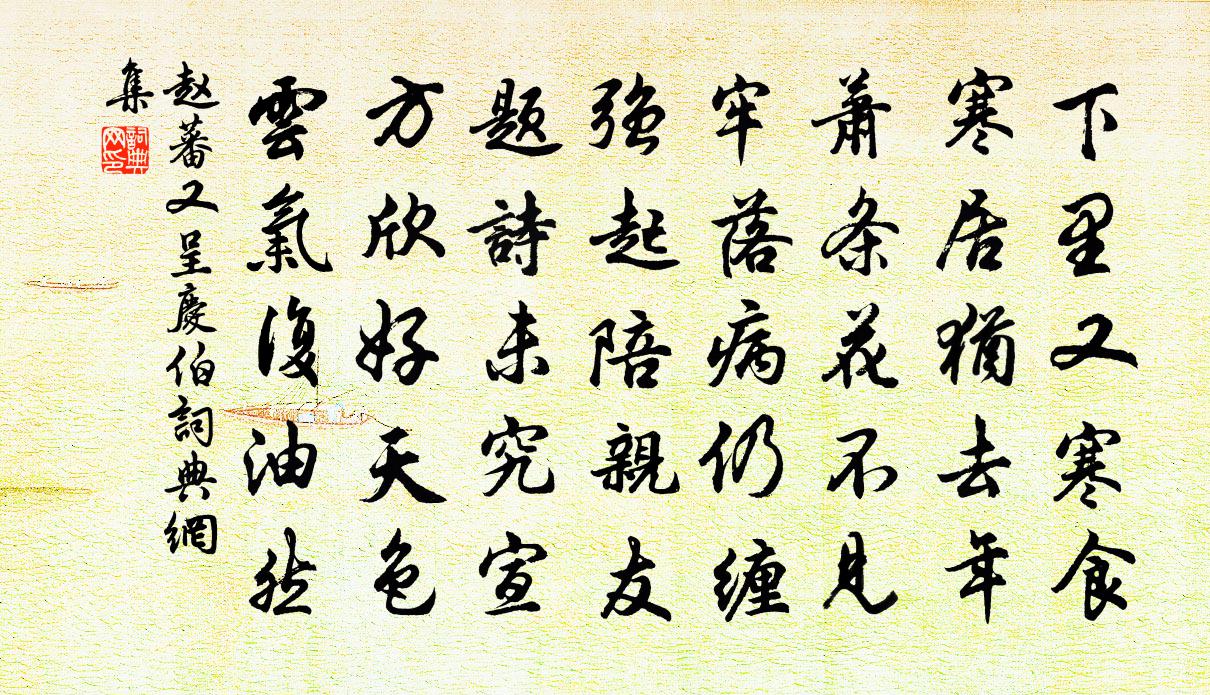 下里又寒食
寒居猶去年
蕭条花不見
牢落病仍缠
強起陪親友
題詩未究宣
方欣好天色
雲氣復油然
赵蕃又呈慶伯詞典網
集
詞典
网印